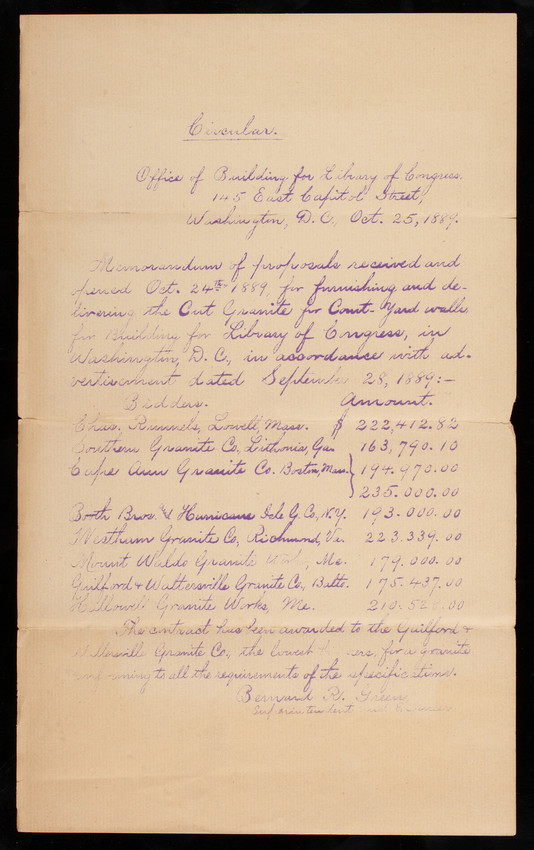 Circular.
Office of Building for Library of Congress.
145 East Capitol Street,
Washington, D.C., Oct. 25, 1889.
Memorandum of proposals received and
opened Oct. 24th 1889, for furnishing and de-
livering the Cut Granite for Court-Yard walls,
for Building for Library of Congress, in
Washington, D.C., in accordance with ad-
vertisement dated September 28, 1889:-
Bidders. Amount.
Chas. Runnels, Lowell, Mass. $ 222,412.82
Southern Granite Co., Lithonia, Ga. 163,790.10
Cape Ann Granite Co. Boston, Mass. } 194.970.00
235.000.00
Booth Bros. & Hurricane Isle G. Co., N.Y. 193.000.00
Westham Granite Co., Richmond, Va. 223.339.00
Mount Waldo Granite Works, Me. 179.000.00
Guilford & Waltersville Granite Co., Balto. 175.437.00
Hallowell Granite Works, Me. 210.520.00
The contract has been awarded to the Guilford &
Waltersville Granite Co., the lowest for a granite
conforming to all the requirements of the specifications.
Bernard R. Green
Superintendent and Engineer